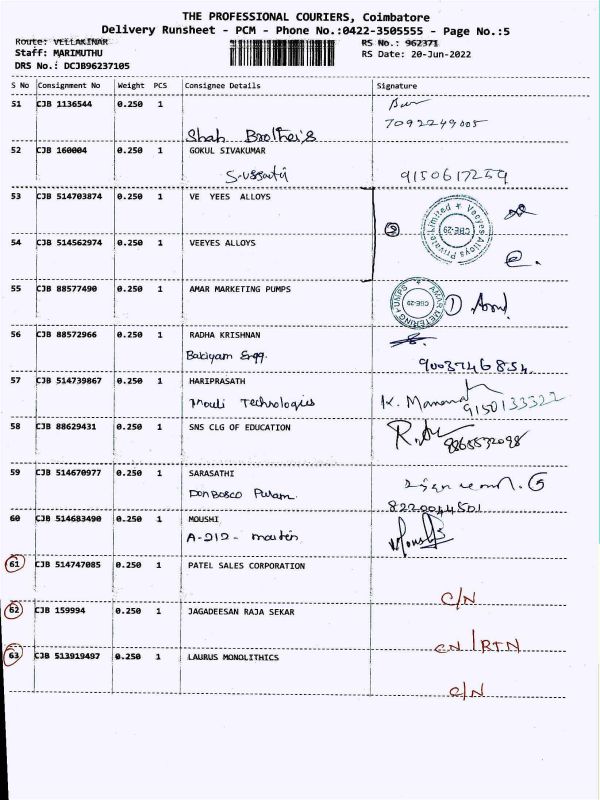 THE PROFESSIONAL COURIERS, Coimbatore
Delivery Runsheet - PCM - Phone No.:0422-3505555 - Page No.:5
Route: VELLAKINAR RS No.: 962371
Staff: MARIMUTHU RS Date: 20-Jun-2022
DRS No.: DCJB96237105
S No Consignment No Weight PCS Consignee Details Signature
51 CJB 1136544 0.250 1
7092249005
Shah Brothers
52 CJB 160004 0.250 1 GOKUL SIVAKUMAR
9150617259
53 CJB 514703874 0.250 1 VE YEES ALLOYS
Veeyes Alloys Private Limited
CBE-29
54 CJB 514562974 0.250 1 VEEYES ALLOYS
55 CJB 88577490 0.250 1 AMAR MARKETING PUMPS
AMAR METERING PUMPS
CBE-29
1
56 CJB 88572966 0.250 1 RADHA KRISHNAN
Bakiyam Engg. 9003746854
57 CJB 514739867 0.250 1 HARIPRASATH
Mouli Technologies K. Manona 9150133322
58 CJB 88629431 0.250 1 SNS CLG OF EDUCATION
8865532098
59 CJB 514670977 0.250 1 SARASATHI
Don Bosco Puram
8220044501
60 CJB 514683490 0.250 1 MOUSHI
A-212-
61 CJB 514747085 0.250 1 PATEL SALES CORPORATION
C/N
62 CJB 159994 0.250 1 JAGADEESAN RAJA SEKAR
CN / RTN
63 CJB 513919497 0.250 1 LAURUS MONOLITHICS
C/N